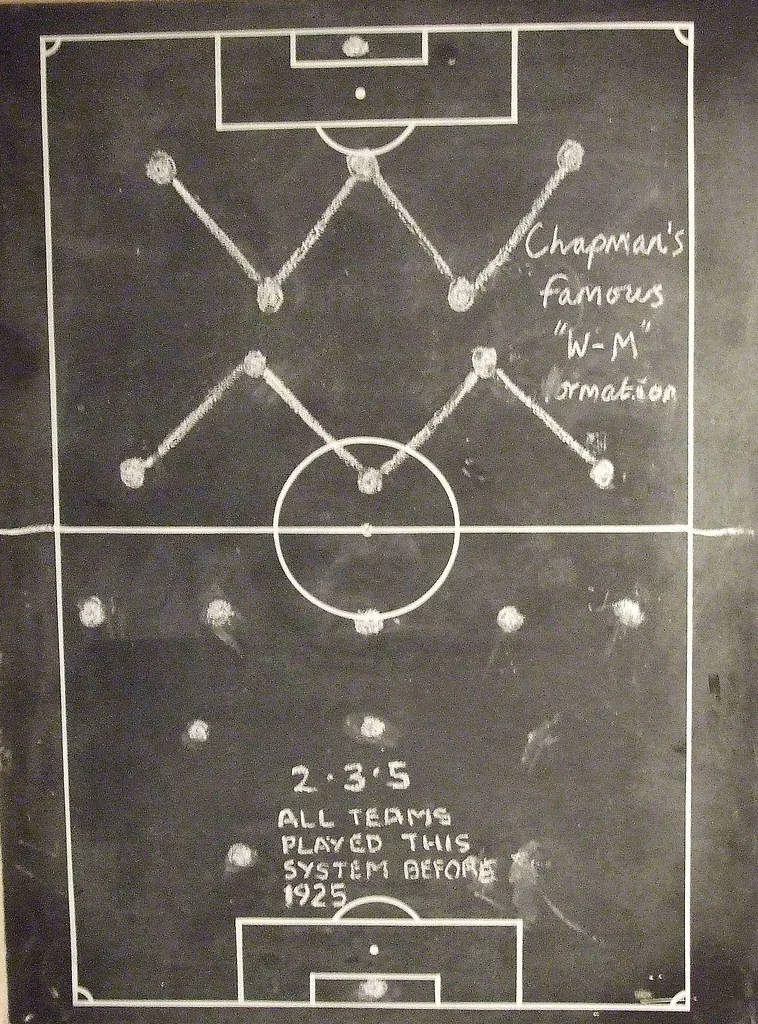 Chapman's
famous
"W-M"
formation
2·3·5
ALL TEAMS
PLAYED THIS
SYSTEM BEFORE
1925